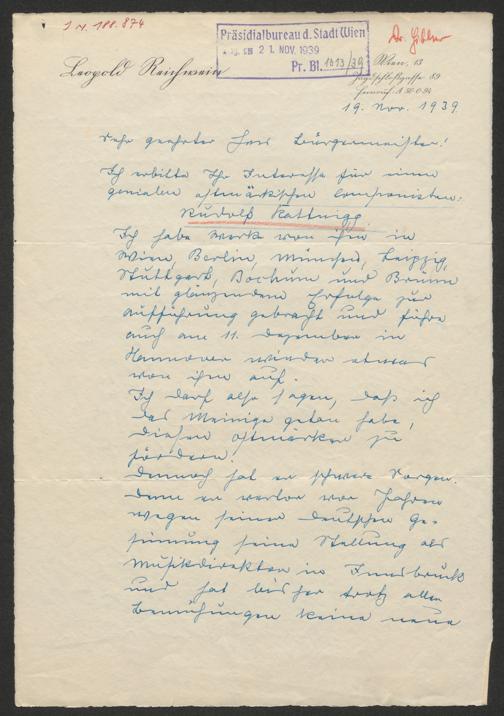 I N. 188.874
Präsidialbureau d. Stadt Wien
21. NOV. 1939
Pr. Bl. 1013/39
Leopold Reichwein
Wien, 13
Jagdschloßgasse 59
19. Nov. 1939
Sehr geehrter Herr Bürgermeister!
Ich erbitte Ihr Interesse für einen
genialen ostmärkischen Componisten:
Rudolf Kattnigg
Ich habe Werke von ihm in
Wien, Berlin, München, Leipzig,
Stuttgart, Bochum und Brünn
mit glänzendem Erfolge zur
Aufführung gebracht und führe
auch am 11. Dezember in
Hannover wieder etwas
von ihm auf.
Ich darf also sagen, daß ich
das Meinige getan habe,
diesen Ostmärker zu
fördern.
Dennoch hat er schwere Sorgen.
Denn er verlor vor Jahren
wegen seiner deutschen Ge-
sinnung seine Stellung als
Musikdirektor in Innsbruck
und hat bisher trotz aller
Bemühungen keine neue